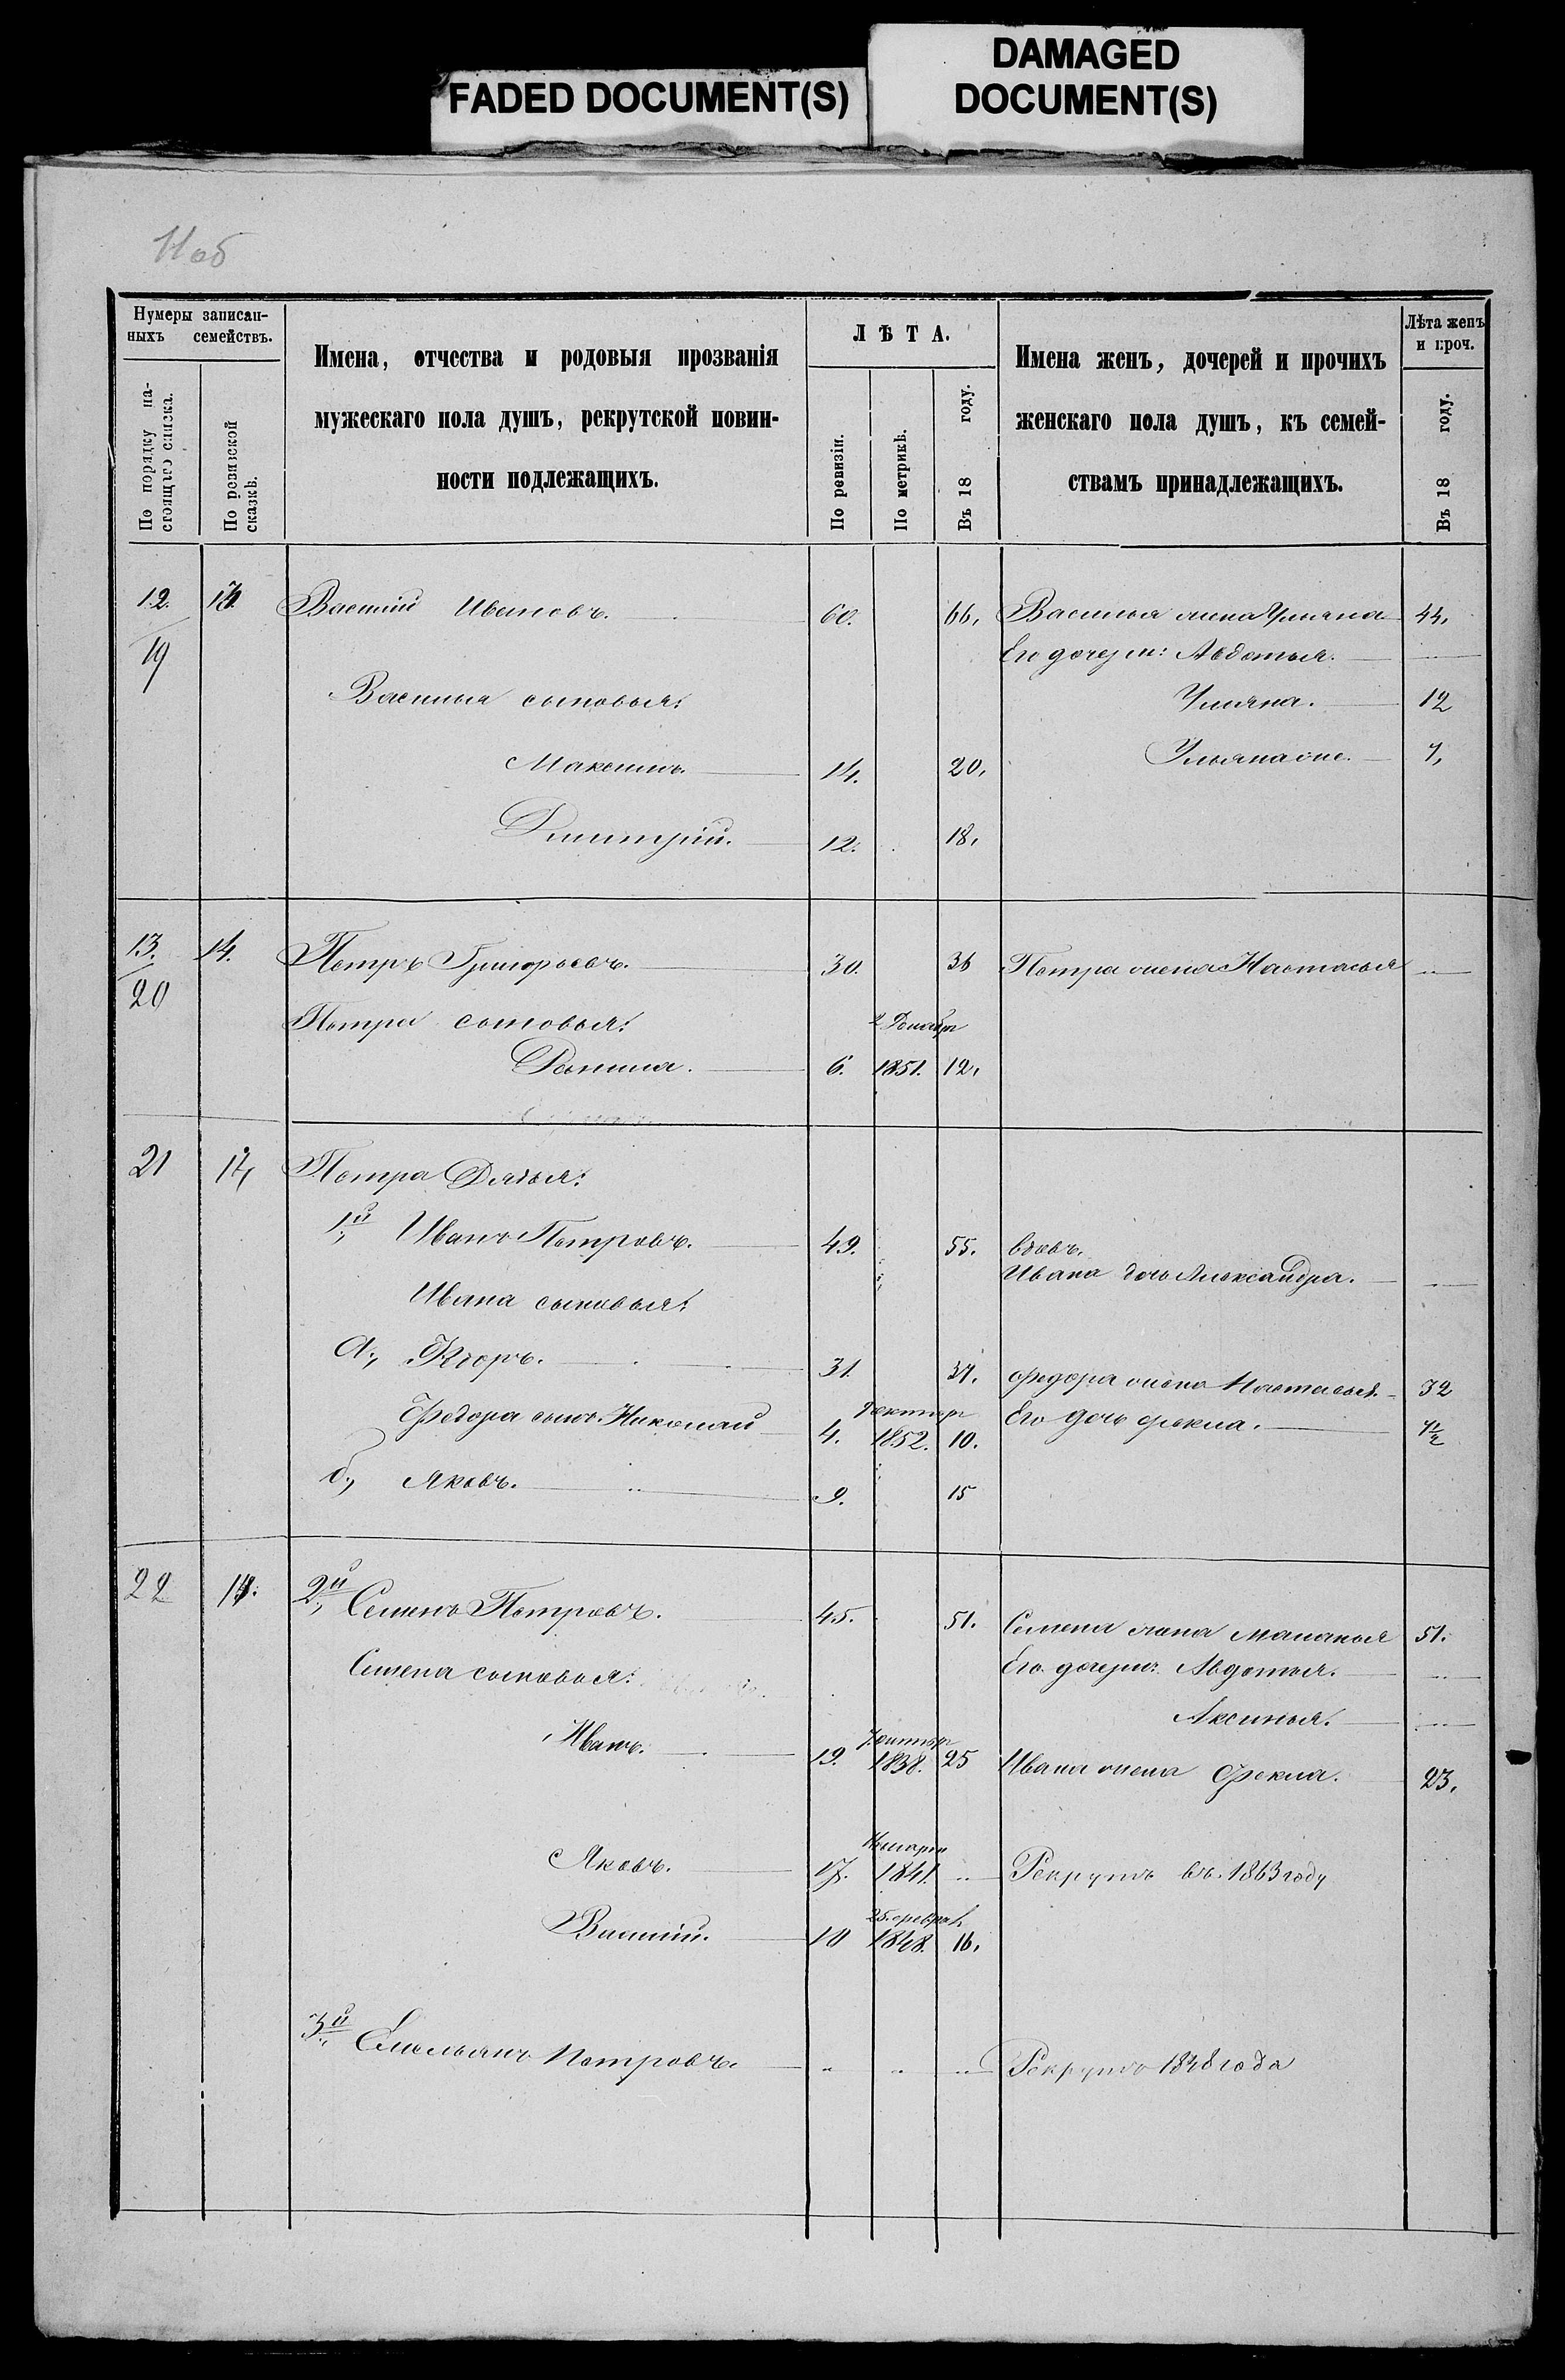 FADED DOCUMENT(S)
DAMAGED
DOCUMENT(S)
11 об
Нумеры записан-
ныхъ семействъ.
По порядку на-
стоящаго списка.
По ревизской
сказкѣ.
Имена, отчества и родовыя прозванія
мужескаго пола душъ, рекрутской повин-
ности подлежащихъ.
ЛѢТА.
По ревизіи.
По метрикѣ.
Въ 18 году.
Имена женъ, дочерей и прочихъ
женскаго пола душъ, къ семей-
ствамъ принадлежащихъ.
Лѣта женъ
и проч.
Въ 18 году.
12. Василій Ивановъ. 60. 66. Василья жена Ульяна 44.
19 Его дочери: Авдотья.
Василья сыновья: Ульяна. 12
Максимъ. 14. 20. Ульяна 7,
Дмитрій. 12. 18.
13. 14. Петръ Григорьевъ. 30. 36 Петра жена Настасья
20
Петра сыновья:
Данила. 6. 1851. 12.
21 Петра Дядья:
1й Иванъ Петровъ. 49. 55. вдовъ.
Ивана дочь Александра.
Ивана сыновья:
а, Ѳедоръ. 31. 37. Ѳедора жена Настасья. 32
Федора сынъ Николай 4. 1852. 10. Его дочь Фекла.
б, Яковъ. 9. 15
22 2й Семенъ Петровъ. 45. 51. Семена жена Маланья 51.
Семена сыновья: Его дочери: Авдотья.
Аксинья.
Иванъ. 19. 1838. 25 Ивана жена Фекла. 23.
Яковъ. 17. марта 1841. Рекрутъ въ 1863 году
Василій. 10 25 февра 1848. 16.
3й Емельянъ Петровъ. Рекрутъ 1848 года